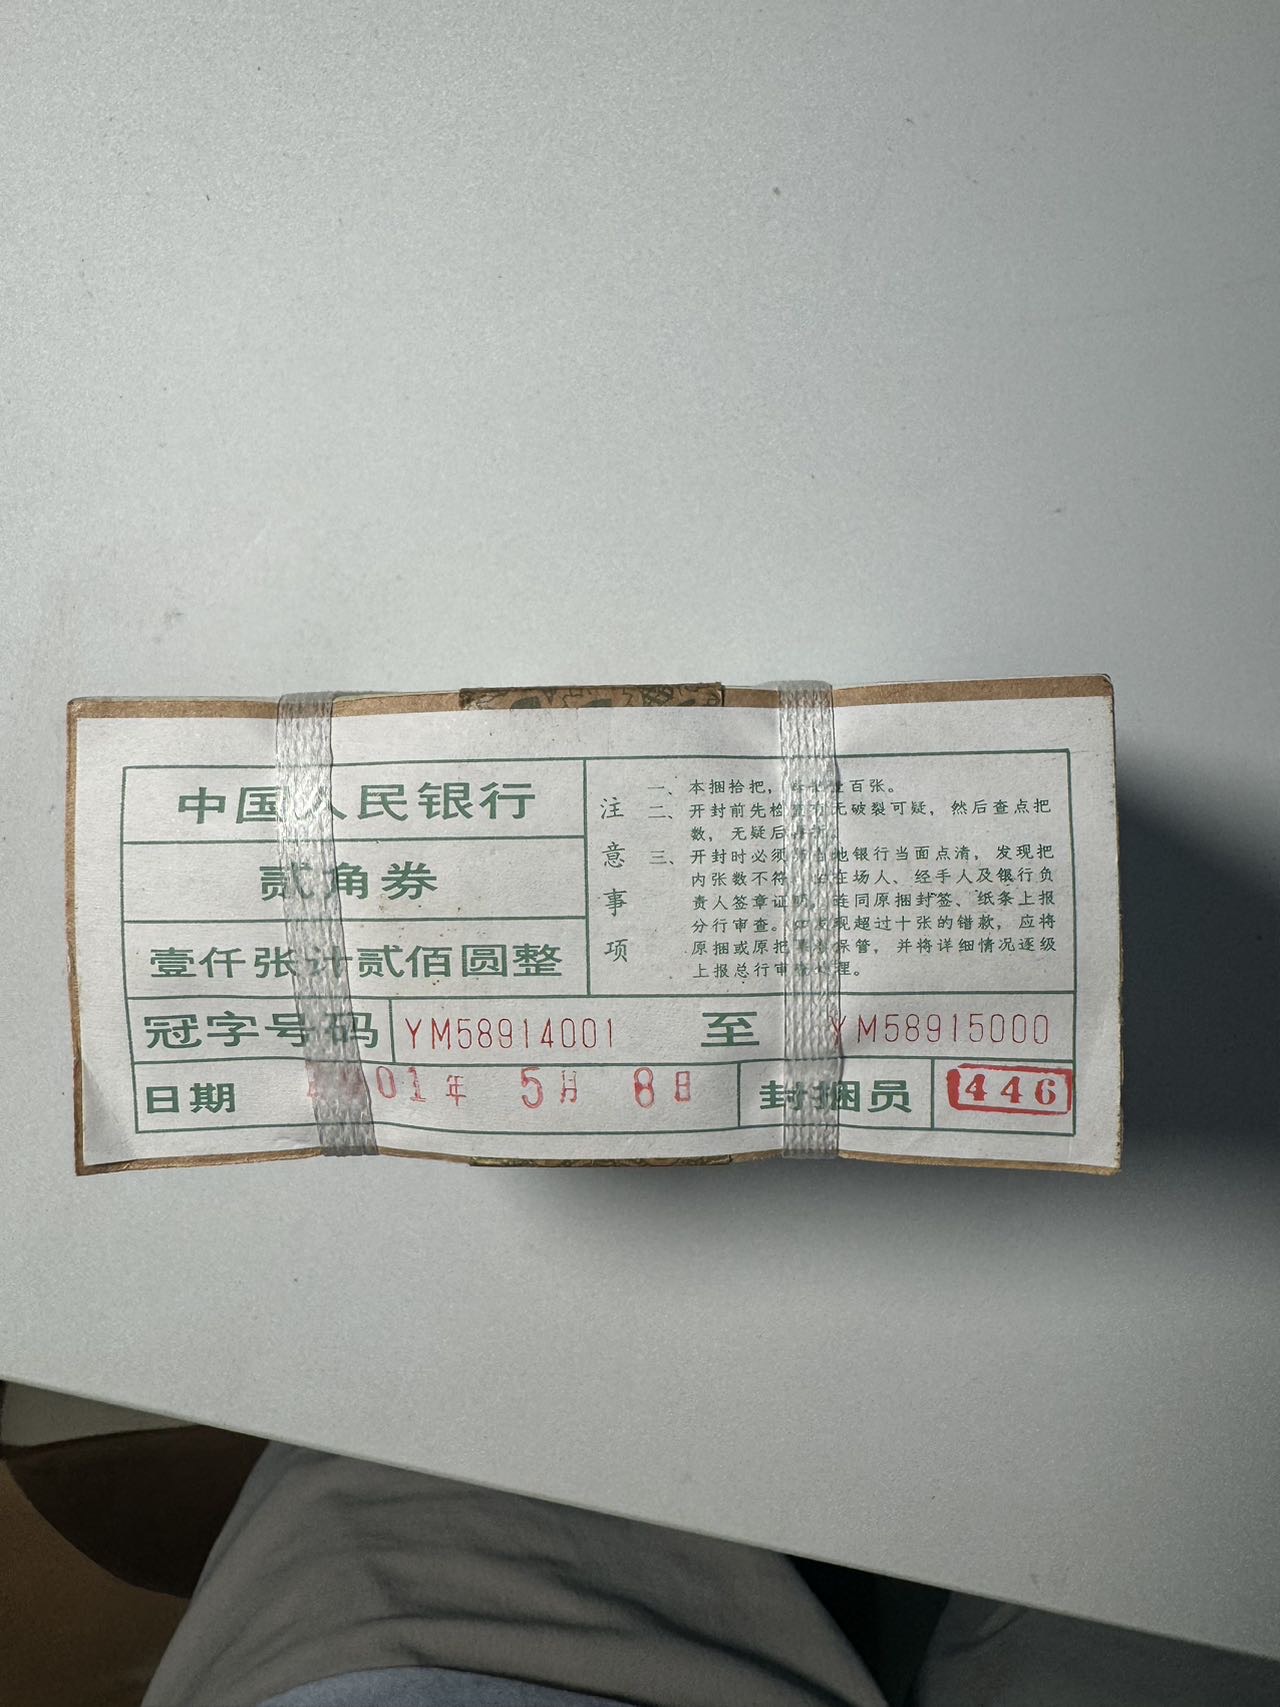 中国人民银行
贰角券
壹仟张计贰佰圆整
注意事项
一、本捆拾把，百张。
二、开封前先检无破裂可疑，然后查点把
数，无疑后
三、开封时必须地银行当面点清，发现把
内张数不符，在场人、经手人及银行负
责人签章证连同原捆封签、纸条上报
分行审查。现超过十张的错款，应将
原捆或原把保管，并将详细情况逐级
上报总行审理。
冠字号码 YM58914001 至 YM58915000
日期 01年 5月 8日 封捆员 446